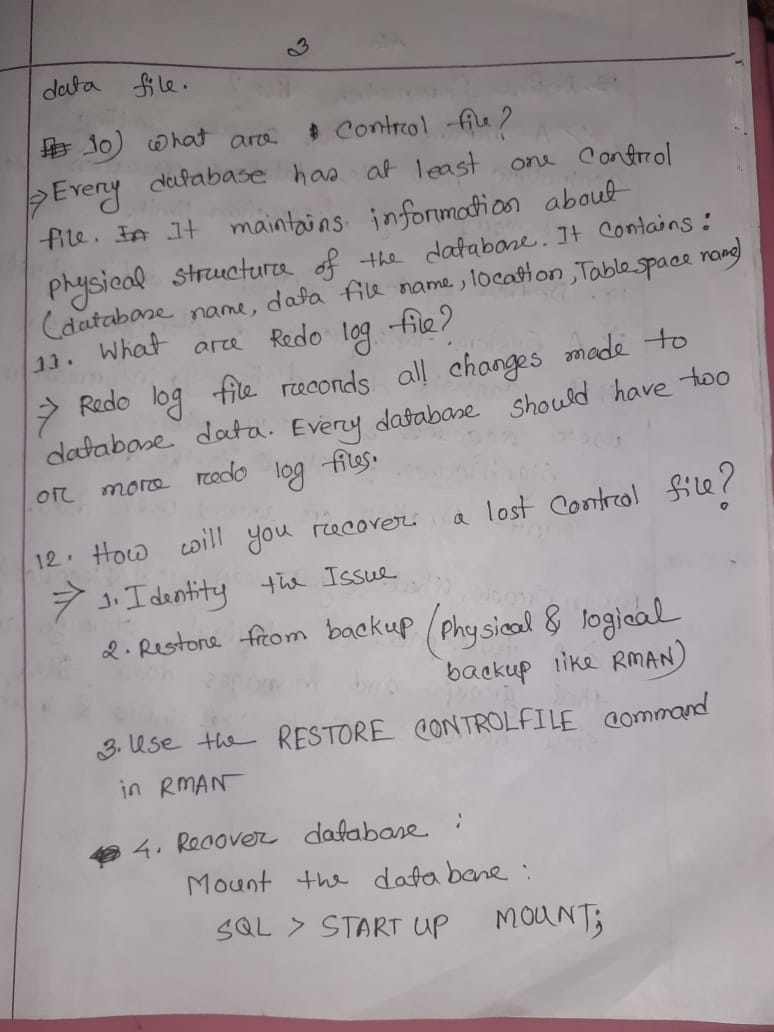 3
data file.
10) What are Control file?
⇒ Every database has at least one Control
file. It maintains information about
physical structure of the database. It contains:
(database name, data file name, location, Table space name)
11. What are Redo log file?
⇒ Redo log file records all changes made to
database data. Every database should have two
or more redo log files.
12. How will you recover a lost Control file?
⇒ 1. Identity the Issue
2. Restore from backup (physical & logical
backup like RMAN)
3. Use the RESTORE CONTROLFILE command
in RMAN
4. Recover database :
Mount the database :
SQL > START UP MOUNT;